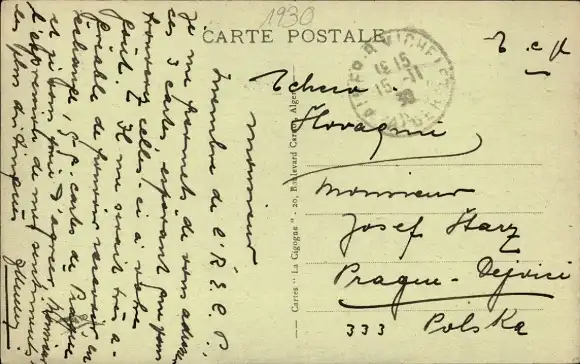 1930
CARTE POSTALE
T.c.p
Membre de l'R.E.C.P.
Monsieur
Je me permets de vous adresser
ces 3 cartes, espérant que vous
trouverez celles-ci à votre
goût. Il me serait très a-
gréable de pouvoir recevoir en
échange, 5 cartes de Prague
et je vous prie d'agréer, Monsieur
l'expression de mes sentiments
les plus distingués
MICHELET
16 15
15-11
30
ALGER
— Cartes "La Cigogne" - 20, Boulevard Carnot, Alger
Tcheco.
Slovaquie
Monsieur
Josef Starz
Prague-Dejvici
333 Polska